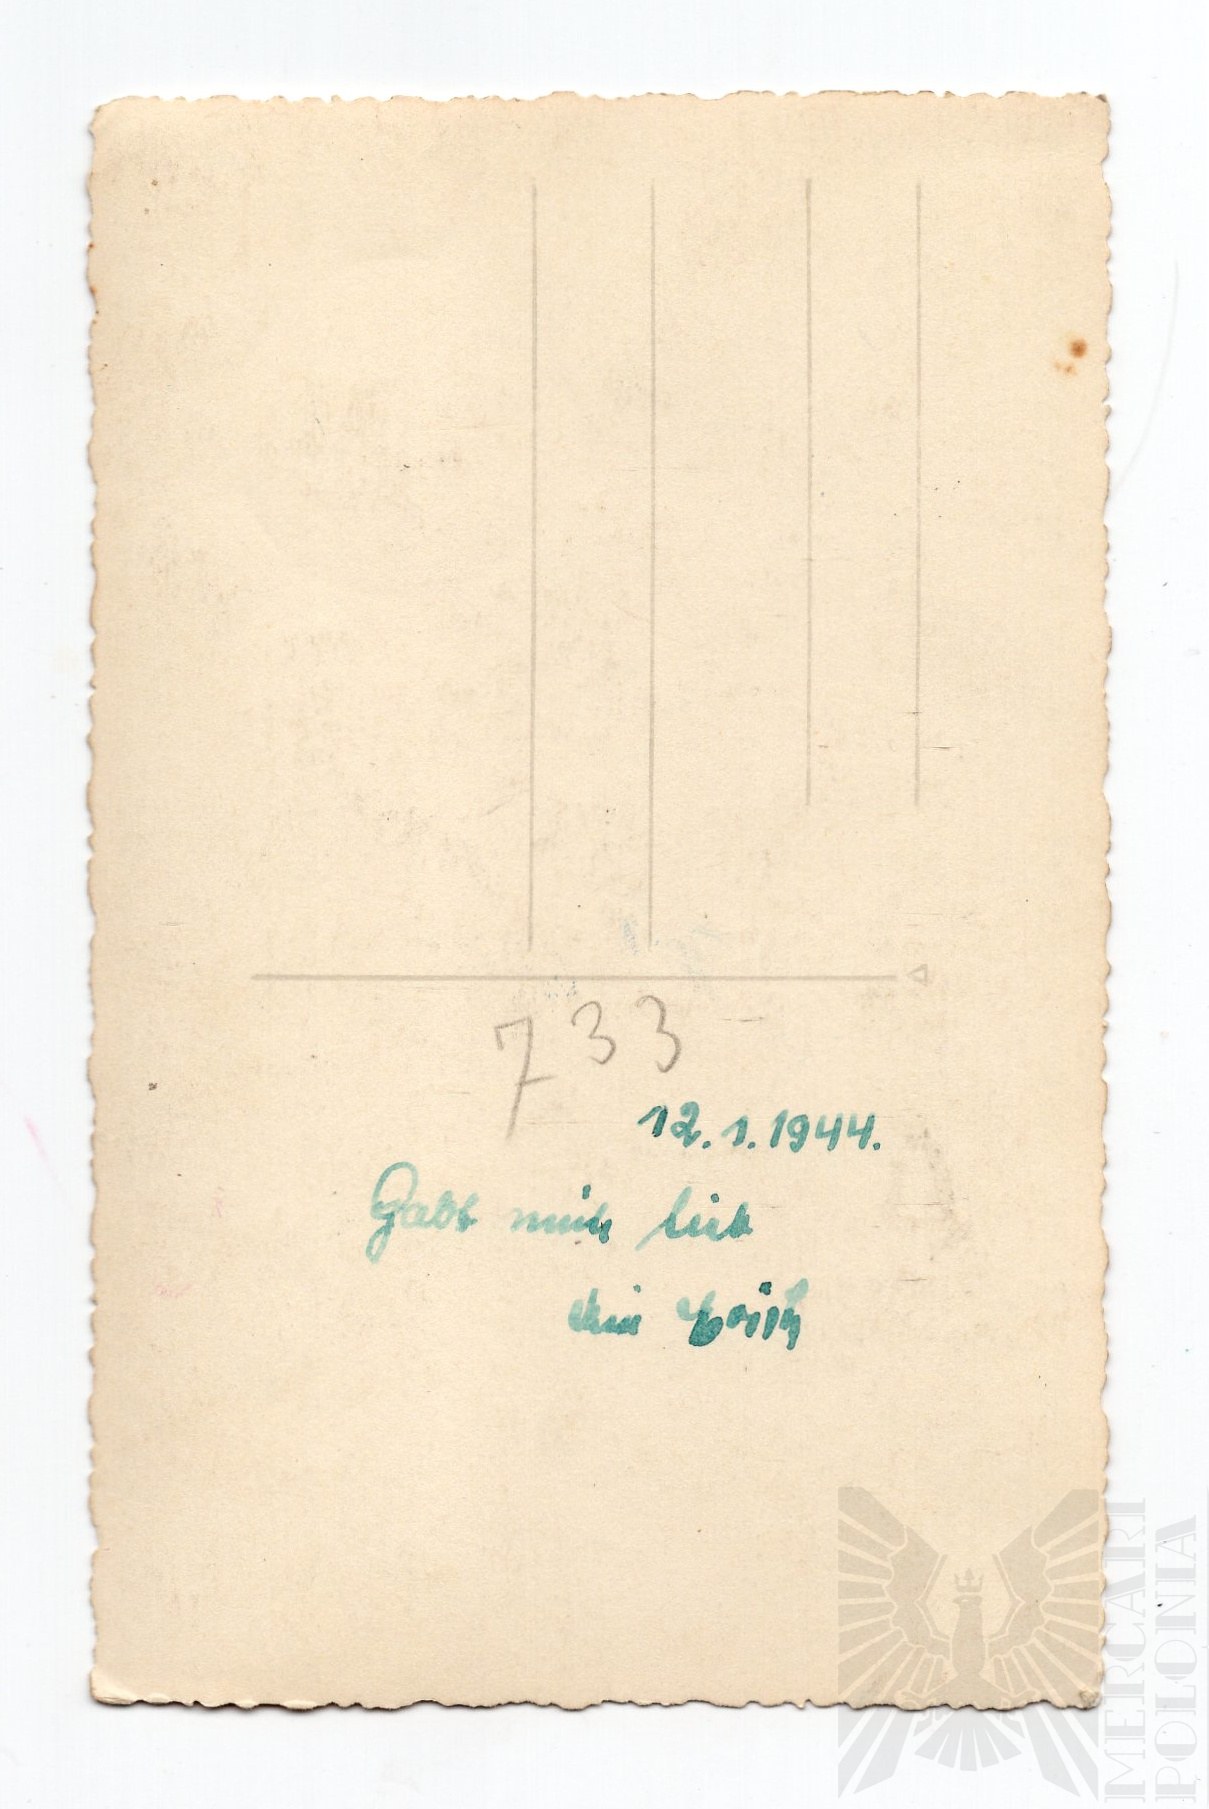 733
12.1.1944.
Habt mich lieb
dein Erich
MERCARI
POLONIA